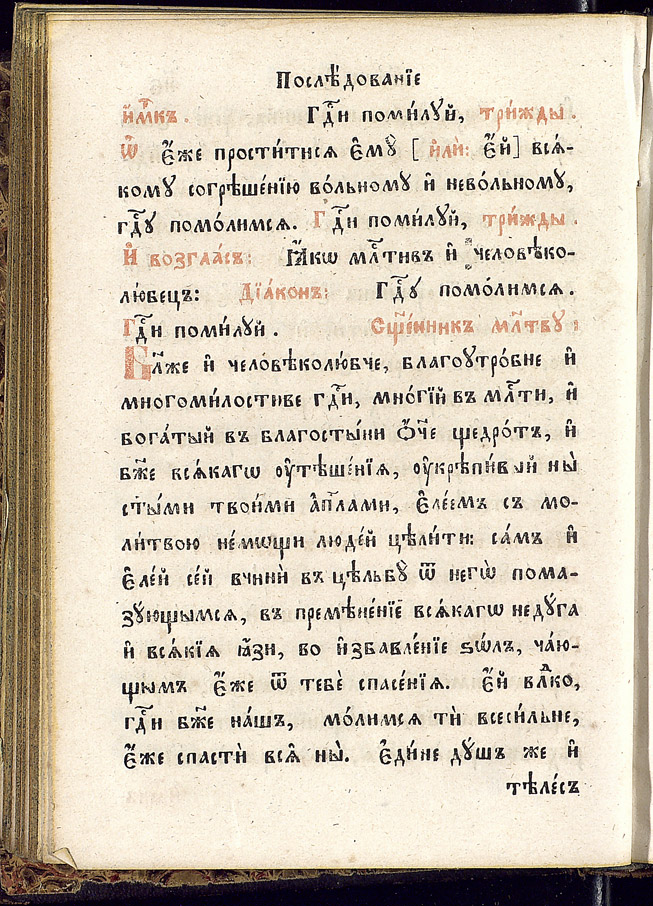 Послѣ́дованїе
и҆́м҃къ. Гдⷭ҇и поми́лꙋй, три́жды.
Ѽ є҆́же прости́тисѧ є҆мꙋ̀ [и҆лѝ: є҆́й] всѧ́-
комꙋ согрѣше́нїю во́льномꙋ и҆ нево́льномꙋ,
гдⷭ҇ꙋ помо́лимсѧ. Гдⷭ҇и поми́лꙋй, три́жды.
И҆ возгла́съ: Ꙗ҆́кѡ млⷭ҇тивъ и҆ человѣко-
лю́бецъ: Дїа́конъ: Гдⷭ҇ꙋ помо́лимсѧ.
Гдⷭ҇и поми́лꙋй. Сщ҃е́нникъ мл҃твꙋ:
Бл҃же и҆ человѣколю́бче, благоꙋтро́бне и҆
многоми́лостиве гдⷭ҇и, мно́гїй въ млⷭ҇ти, и҆
бога́тый въ благосты́ни ѻ҆́ч҃е щедро́тъ, и҆
бж҃е всѧ́кагѡ ᲂу҆тѣше́нїѧ, ᲂу҆крѣпи́вый ны̀
ст҃ы́ми твои́ми а҆пⷭ҇лами, є҆ле́емъ съ мо-
ли́твою не́мѡщи люде́й цѣли́ти: са́мъ и҆
є҆ле́й се́й вчинѝ въ цѣльбꙋ̀ ѿ негѡ̀ пома-
зꙋющымсѧ, въ премѣне́нїе всѧ́кагѡ недꙋ́га
и҆ всѧ́кїѧ ꙗ҆́зи, во и҆збавле́нїе ѕѡ́лъ, ча́ю-
щымъ є҆́же ѿ тебє̀ спасе́нїѧ. Є҆́й влⷣко,
гдⷭ҇и бж҃е на́шъ, мо́лимсѧ тѝ всеси́льне,
є҆́же спастѝ всѧ̑ ны̀. Є҆ди́не дꙋ́шъ же и҆
тѣле́съ